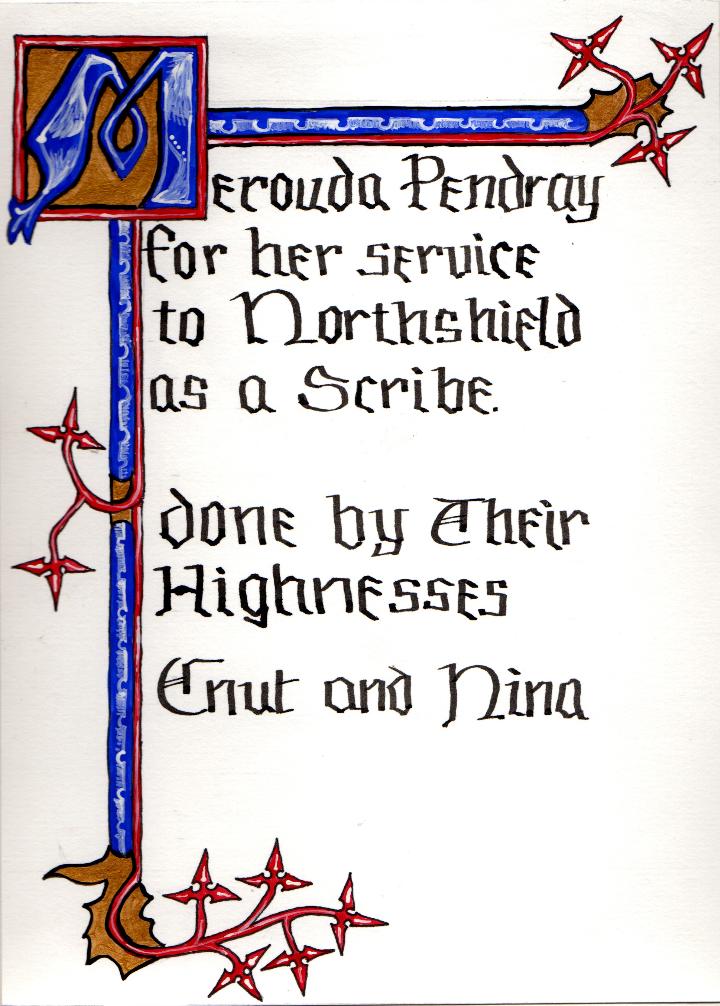 Merouda Pendray
for her service
to Northshield
as a Scribe.
done by Their
Highnesses
Cnut and Nina